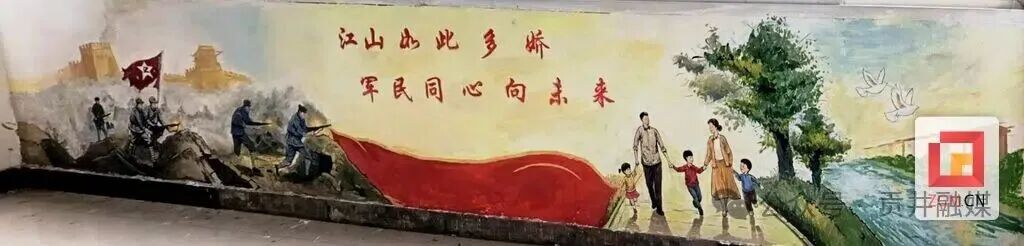 江山如此多娇
军民同心向未来
ZGM.CN
公众号·贡井融媒